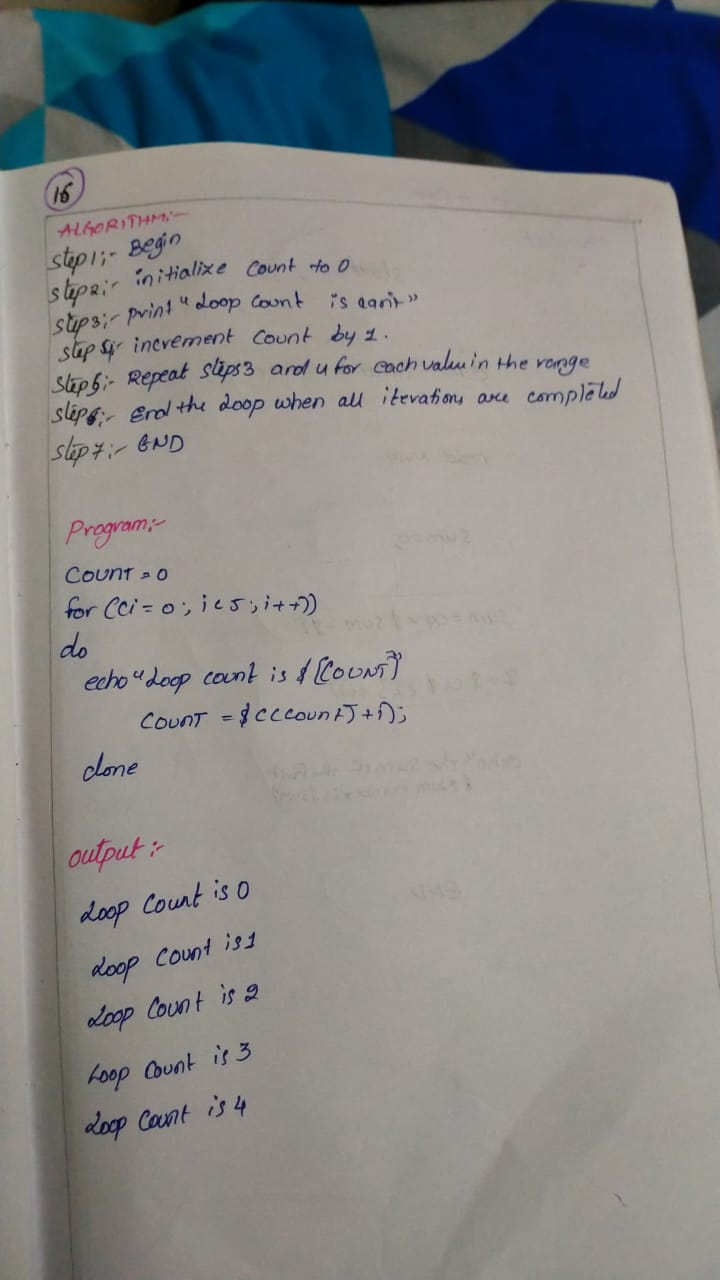 16
ALGORITHM:-
Step1:- Begin
Step2:- initialize Count to 0
Step3:- print "Loop Count is
Step4:- increment Count by 1.
Step5:- Repeat Steps3 and 4 for each value in the range
Step6:- End the Loop when all iterations are completed
Step7:- END
Program:-
COUNT = 0
for ((i = 0; i<5; i++))
do
echo "Loop count is $ [COUNT]"
COUNT = $ (((count]+1);
done
output:-
Loop Count is 0
Loop Count is 1
Loop Count is 2
Loop Count is 3
Loop Count is 4